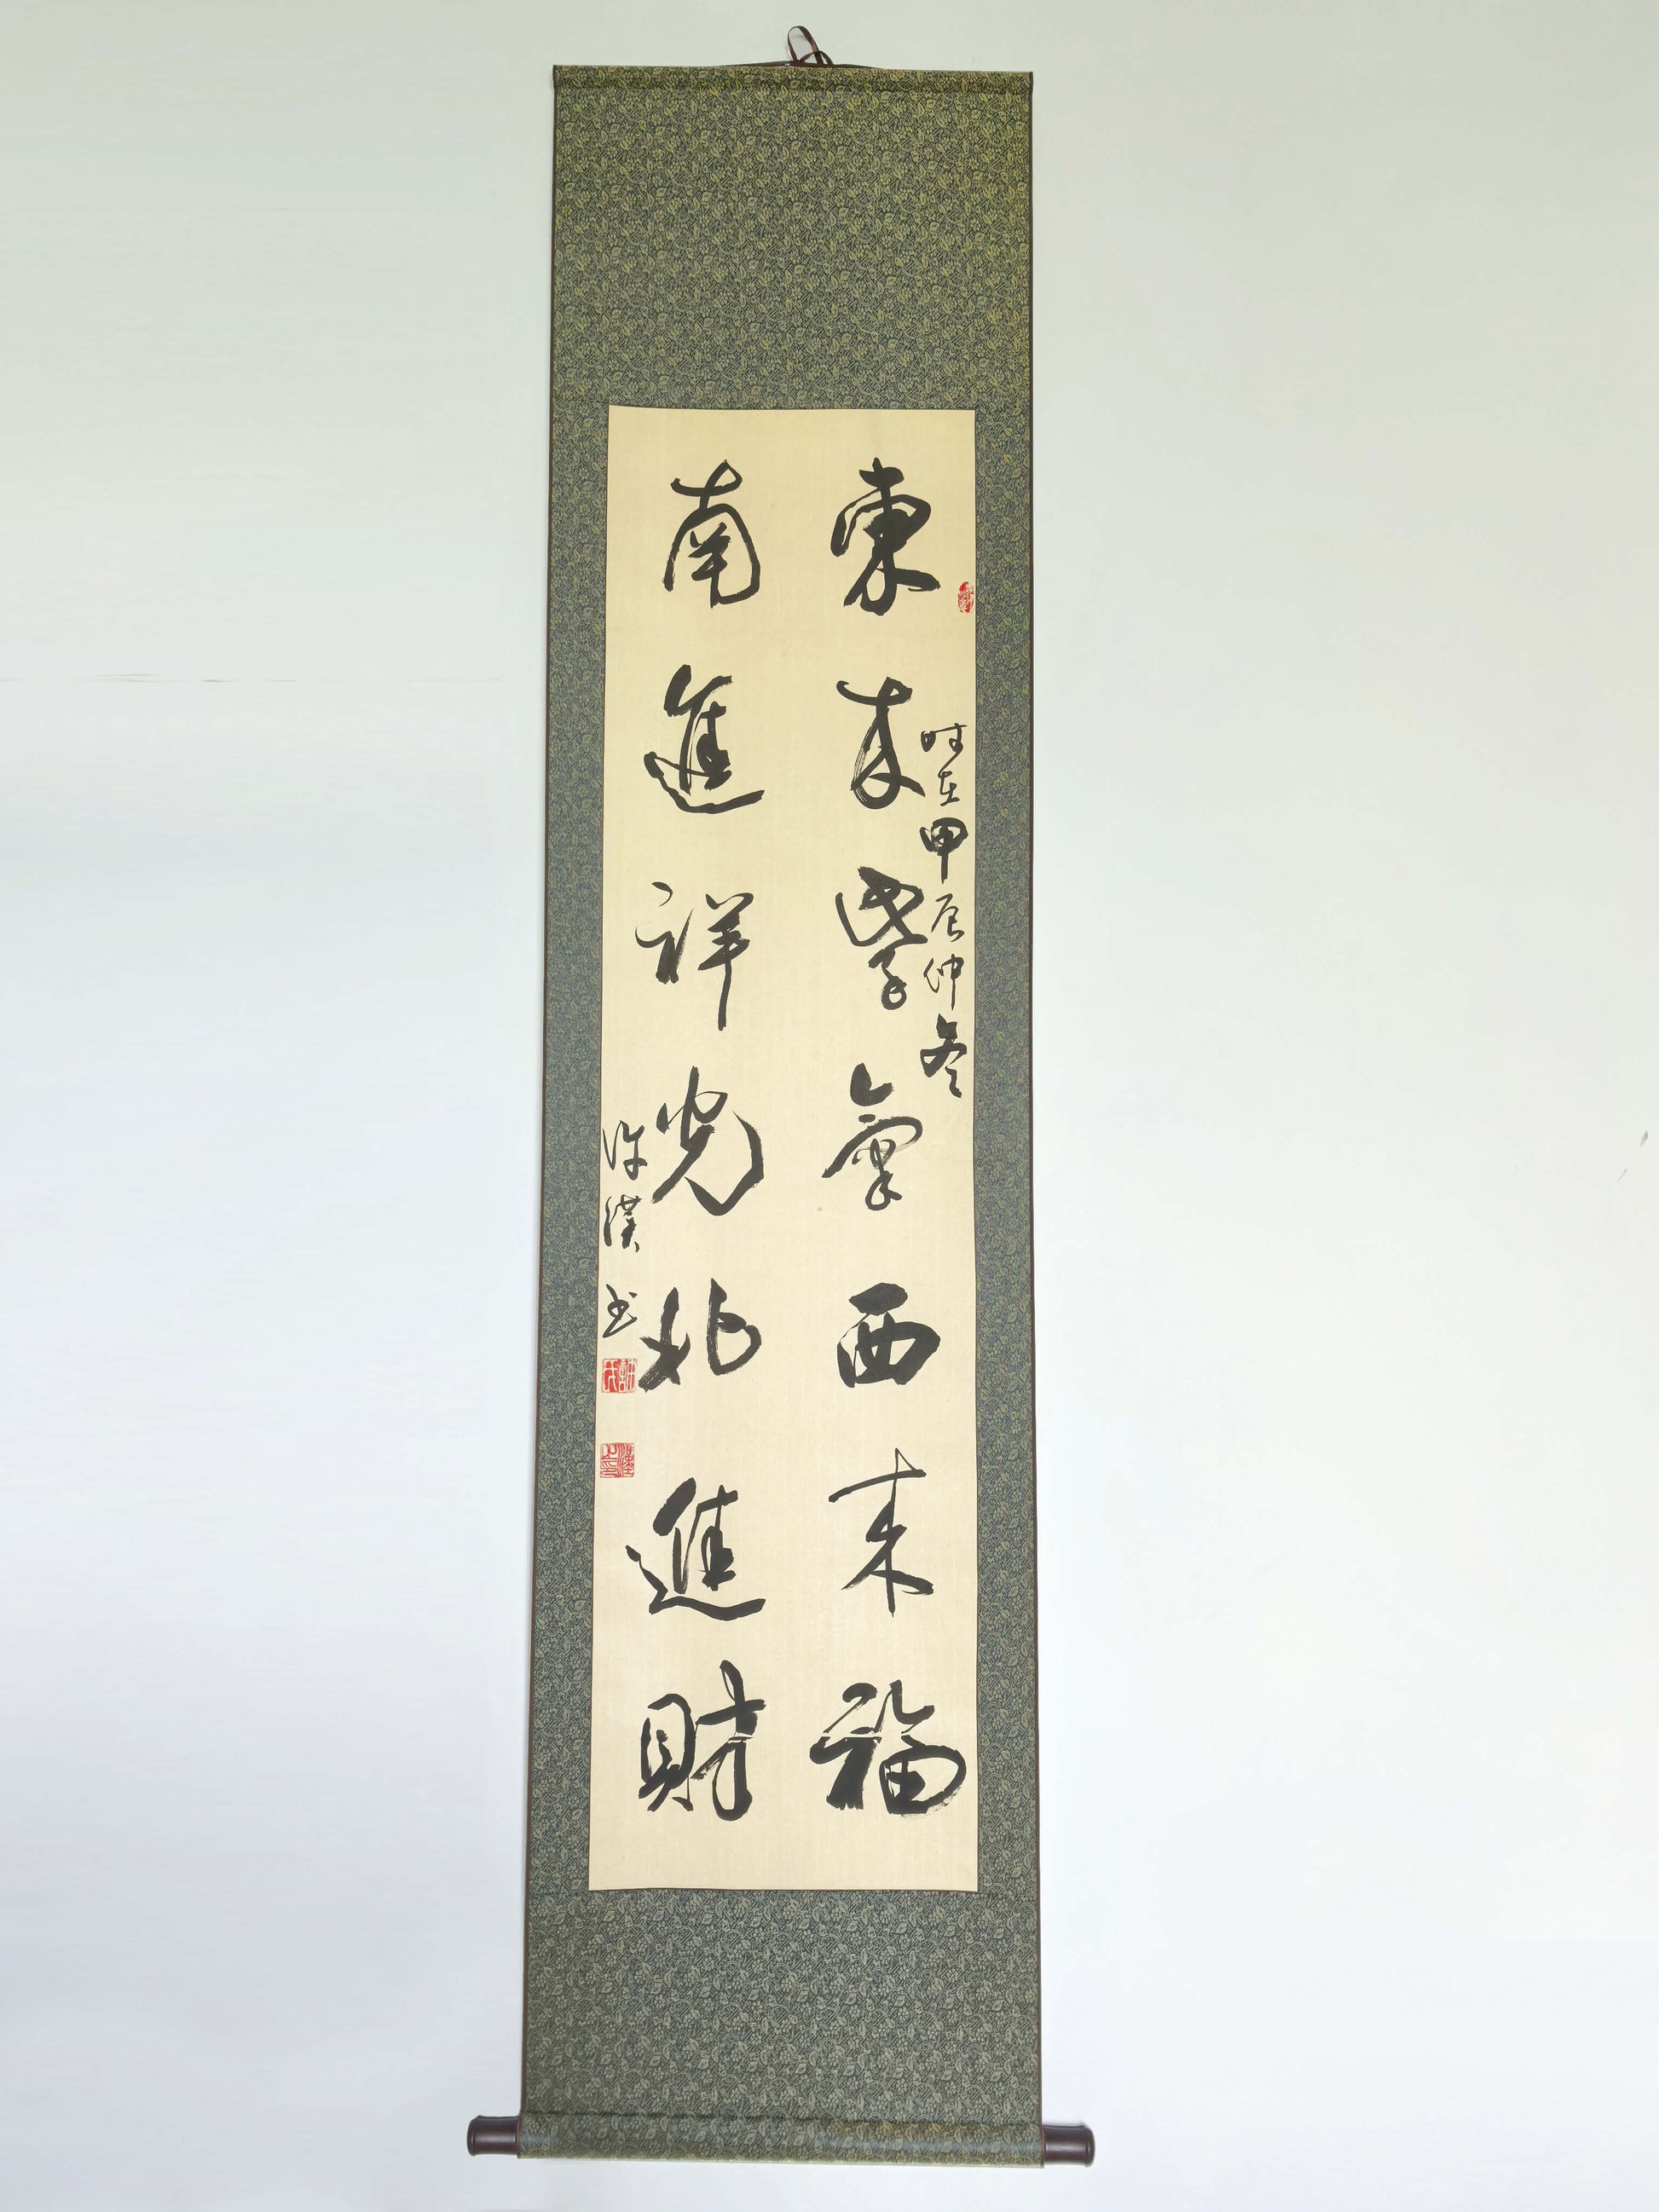 東來紫氣西來福
南進祥光北進財
時在甲辰仲冬
許漢書